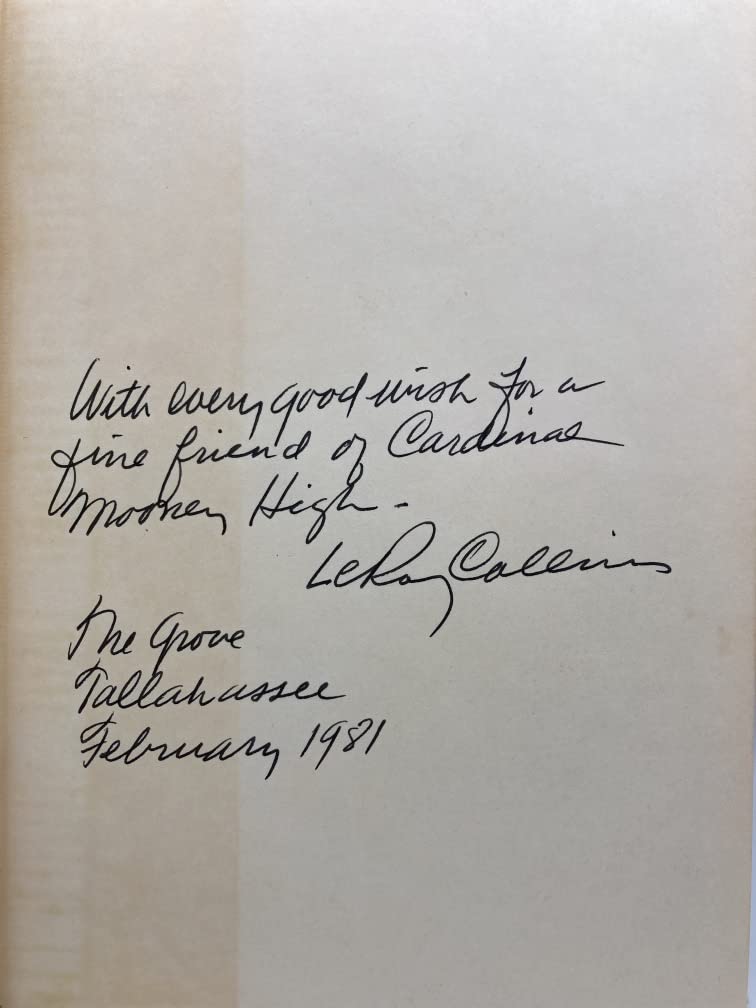 With every good wish for a
fine friend of Cardinal
Mooney High -
LeRoy Collins
The Grove
Tallahassee
February 1981